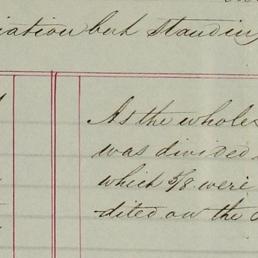 iation but standin
As the whole
was divided
which 5/8 were
dited on the